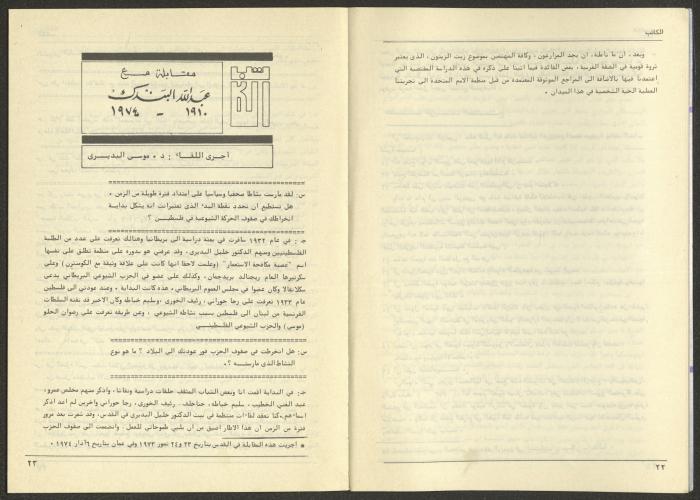 الكاتب
وبعد، ان ما ناملة، ان يجد المزارعون، وكافة المهتمين بموضوع زيت الزيتون، الذى يعتبر
ثروة قومية في الضفة الغربية، بعض الفائدة فيما اتينا على ذكره في هذه الدراسة المقتضبة التي
اعتمدنا فيها بالاضافة الى المراجع الموثوقة المعتمدة من قبل منظمة الامم المتحدة الى تجربتنا
العملية الحية الشخصية في هذا الميدان.
٢٢
الكاتب
مقابلة مع
عبدالله البندك
١٩١٠ - ١٩٧٤
اجرى اللقاء : د. موسى البديرى
س: لقد مارست نشاطا صحفيا وسياسيا على امتداد فترة طويلة من الزمن.
هل تستطيع ان تحدد نقطة البدء الذى تعتبرانت انه يشكل بداية
انخراطك في صفوف الحركة الشيوعية في فلسطين ؟.
ج: في عام ١٩٣٢ سافرت في بعثة دراسية الى بريطانيا وهنالك تعرفت على عدد من الطلبة
الفلسطينيين ومنهم الدكتور خليل البديرى، وقد عرفني هو بدوره على منظمة تطلق على نفسها
اسم "عصبة مكافحة الاستعمار" (وعلمت لاحقا انها كانت على علاقة وثيقة مع الكومنترن) وعلى
سكرتيرها العام ريجنالد بريدجمان، وكذلك على عضو في الحزب الشيوعي البريطاني يدعى
سكلاتفالا وكان عضوا في مجلس العموم البريطاني. هذه كانت البداية. وعند عودتي الى فلسطين
عام ١٩٣٣ تعرفت على رجا حوراني، رئيف الخورى، وسليم خياطه وكان الاخير قد نفته السلطات
الفرنسية من لبنان الى فلسطين بسبب نشاطه الشيوعي، وعن طريقه تعرفت على رضوان الحلو
(موسى) والحزب الشيوعي الفلسطيني
س: هل انخرطت في صفوف الحزب فور عودتك الى البلاد ؟ ما هو نوع
النشاط الذى مارسته ؟.
ج: في البداية اقمت انا وبعض الشباب المثقف حلقات دراسية ونقاشا، واذكر منهم مخلص عمرو،
عبد الغني الخطيب، سليم خياطه، رئيف الخورى، رجا حوراني واخرين لم اعد اذكر
اسماءهم. كنا نعقد لقاءات منتظمة في بيت الدكتور خليل البديرى في القدس. وقد شعرت بعد مرور
فترة من الزمن ان هذا الاطار اضيق من ان يلبي طموحاتي للعمل. وانضممت الى صفوف الحزب
* اجريت هذه المقابلة في القدس بتاريخ ٢٣ و٢٤ تموز ١٩٧٣ وفي عمان بتاريخ ٦ آذار ١٩٧٤.
٢٣